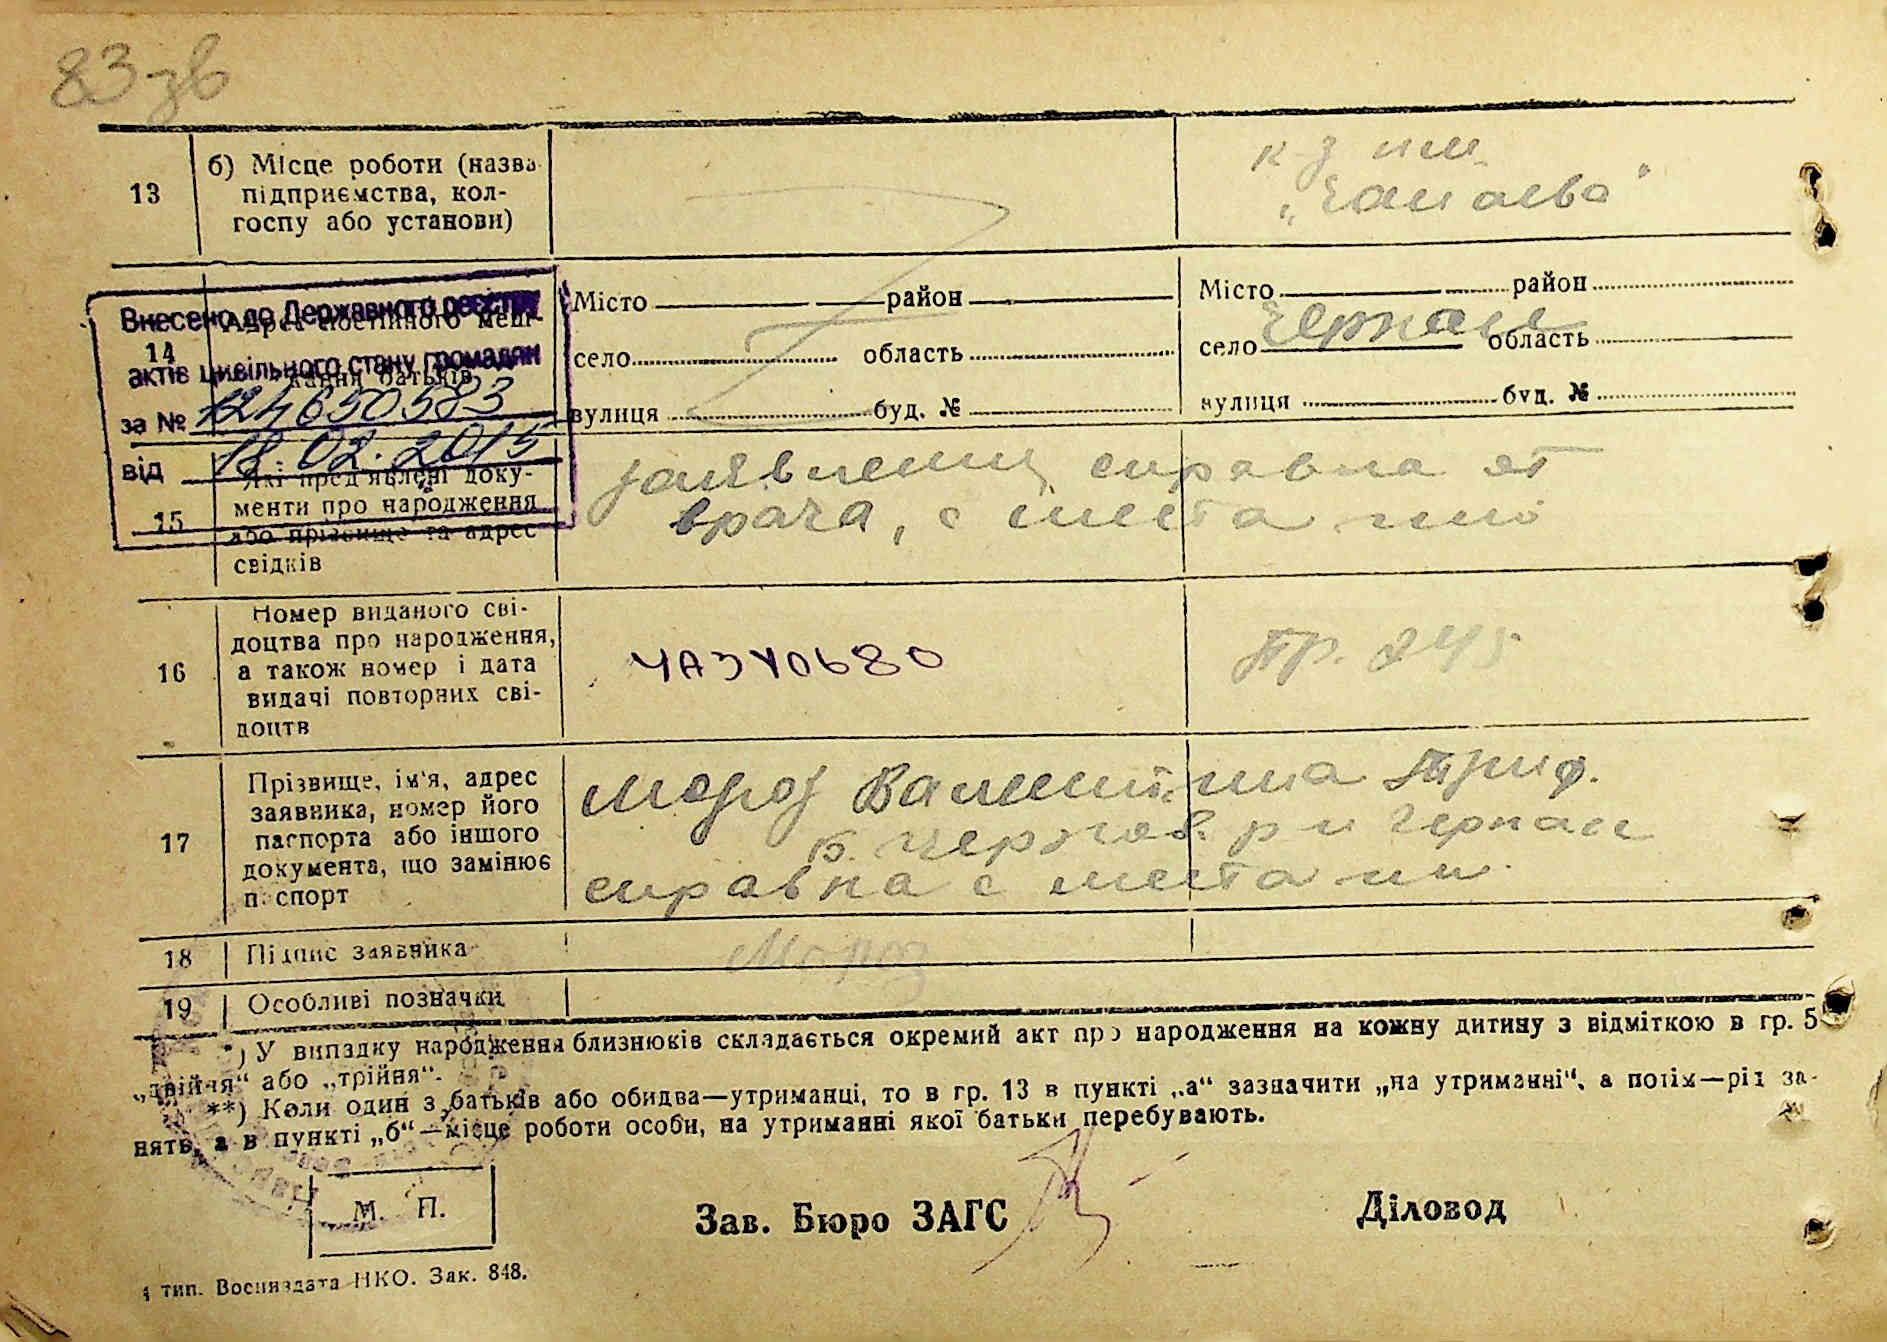 83 зв
б) Місце роботи (назва
13
підприємства, кол-
госпу або установи)
к-з им
„Чапаева"
Внесено до Державного реєстру
актів цивільного стану громадян
за № 124650583
від 18.02.2015
14
Адрес постійного меш-
кання батьків
Місто район
село область
вулиця буд. №
Місто район
село область
вулиця буд. №
15
Які пред'явлені доку-
менти про народження
або прізвище та адрес
свідків
справка от
врача, с места
16
Номер виданого сві-
доцтва про народження,
а також номер і дата
видачі повторних сві-
доцтв
ЧА 340680
Пр. 245
17
Прізвище, ім'я, адрес
заявника, номер його
паспорта або іншого
документа, що замінює
паспорт
Мороз Валентина Триф.
справка с места
18 Підпис заявника
Мороз
19 Особливі позначки
*) У випадку народження близнюків складається окремий акт про народження на кожну дитину з відміткою в гр. 5
„двійня" або „трійня".
**) Коли один з батьків або обидва—утриманці, то в гр. 13 в пункті „а" зазначити „на утриманні", а потім—рід за-
нять, а в пункті „б"—місце роботи особи, на утриманні якої батьки перебувають.
М. П.
Зав. Бюро ЗАГС
Діловод
тип. Воениздата НКО. Зак. 848.